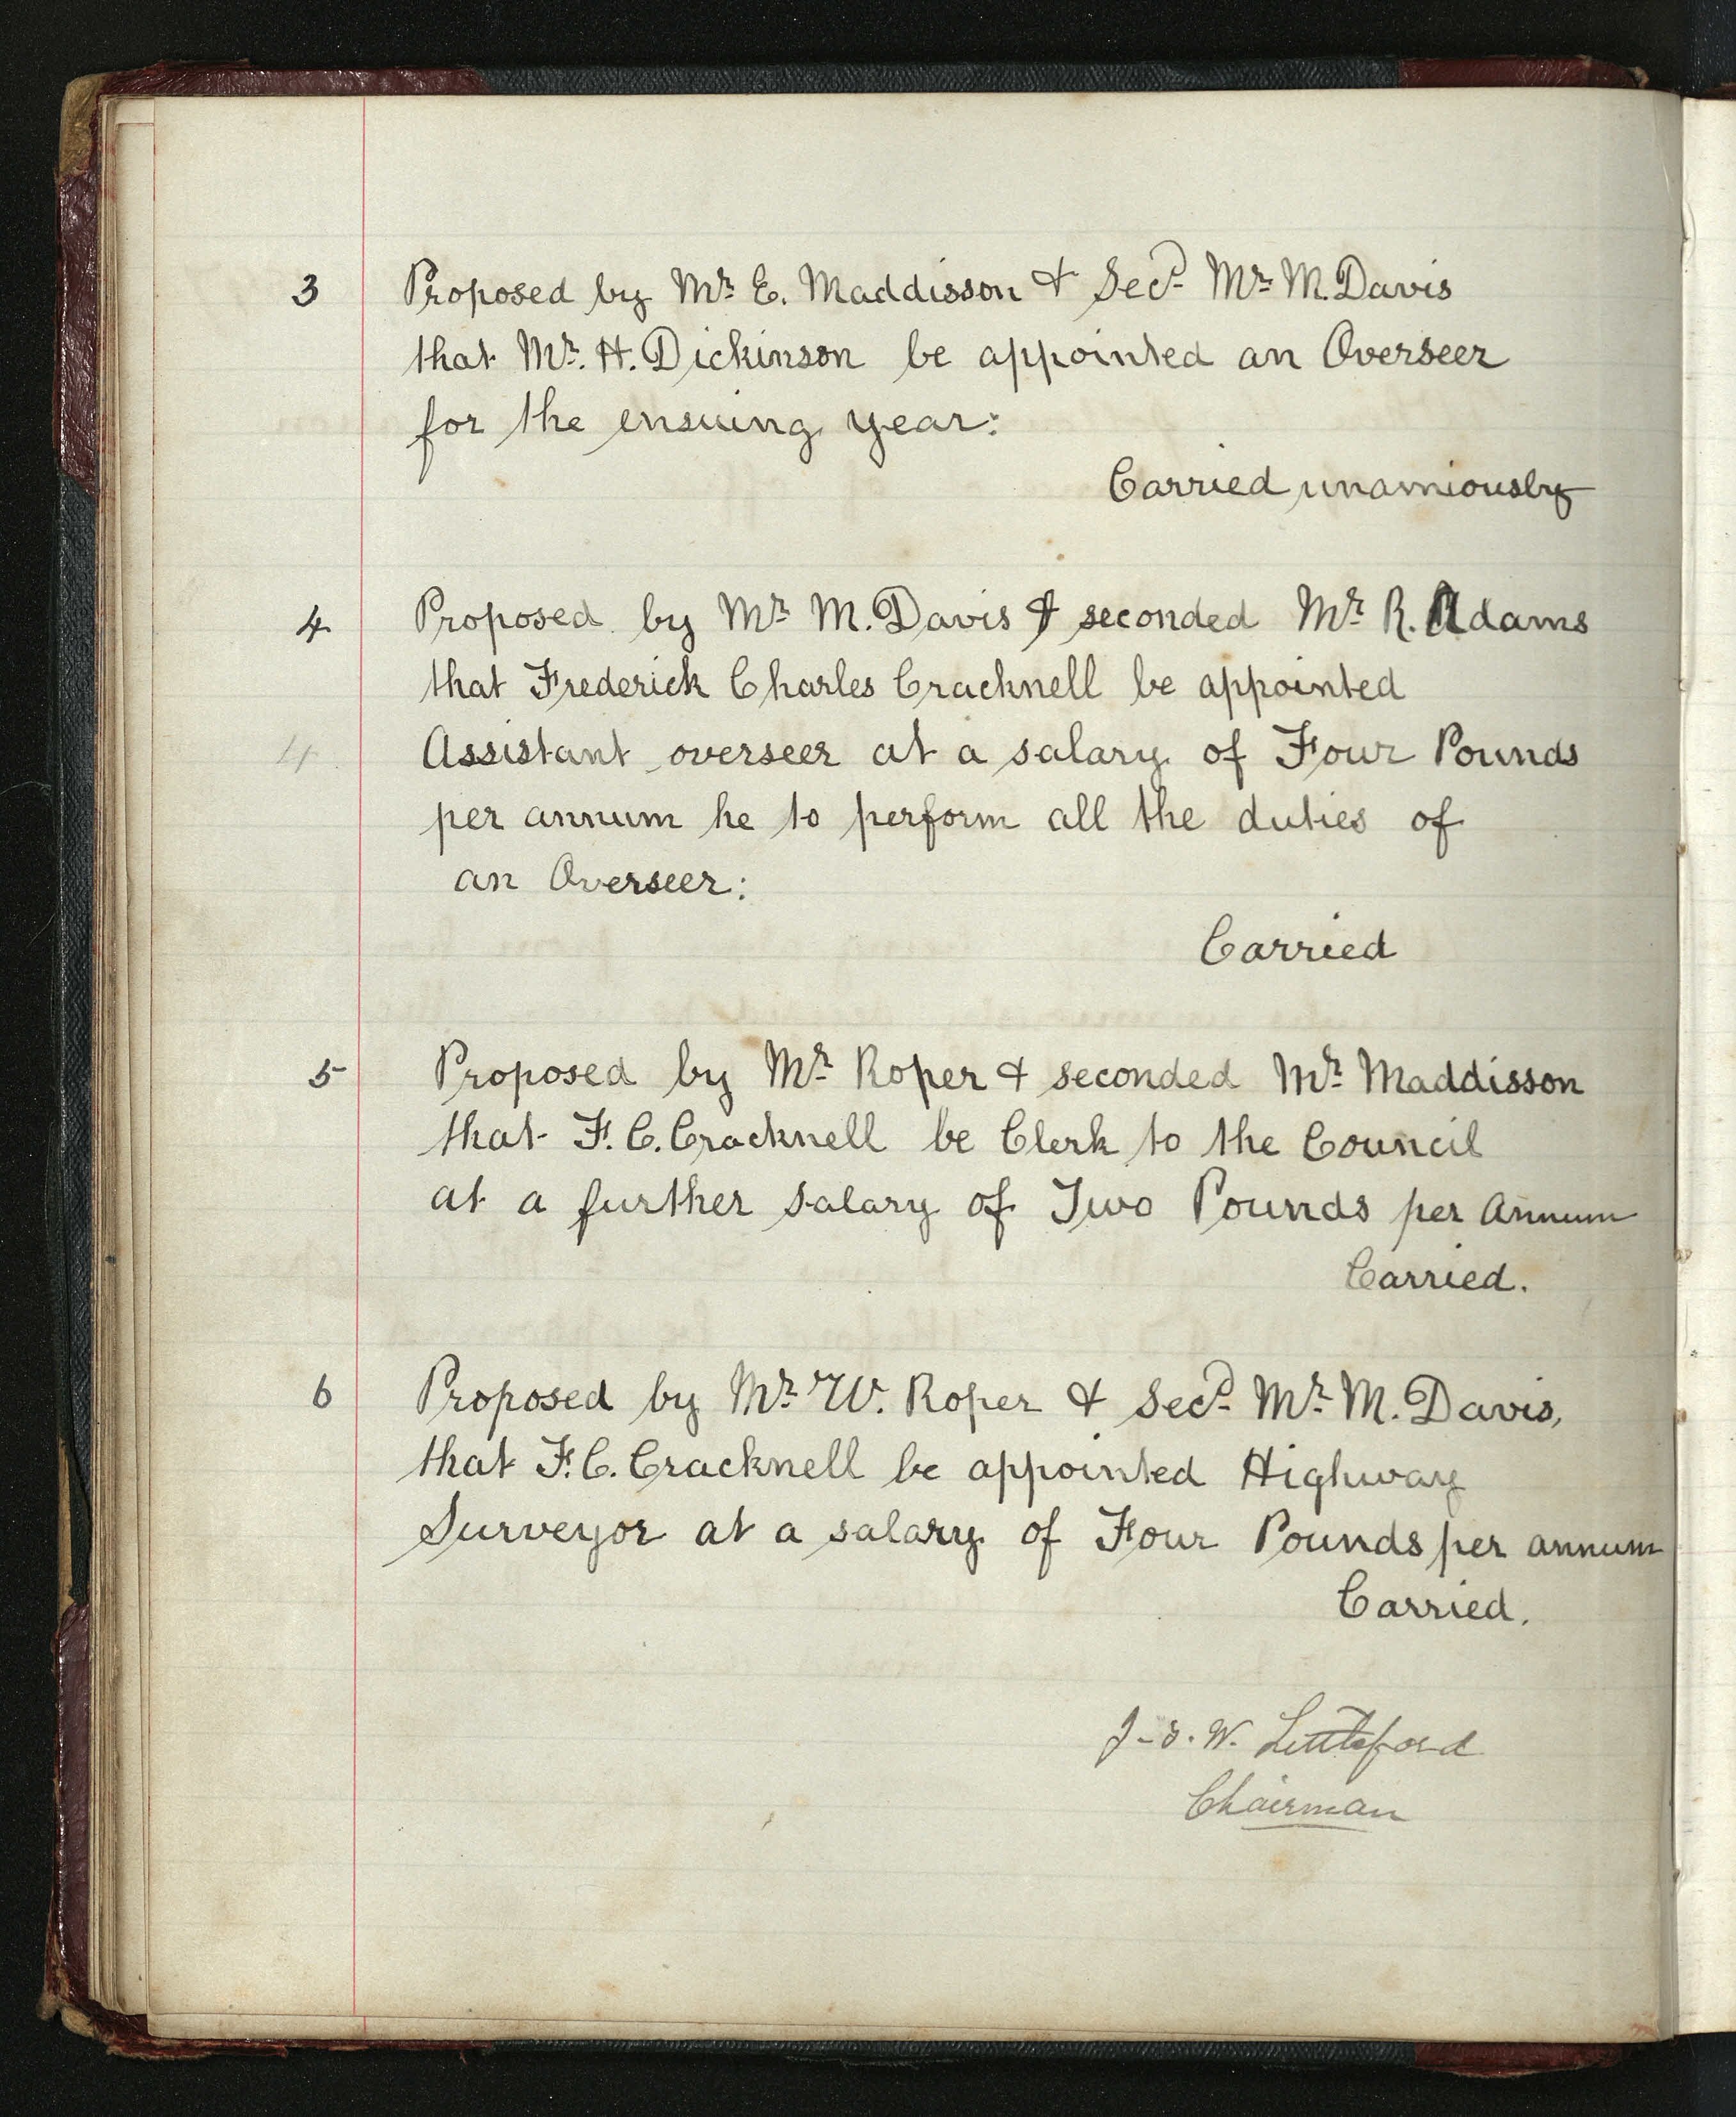 3 Proposed by Mr. E. Maddisson & Secd. Mr. M. Davis
that Mr. H. Dickinson be appointed an Overseer
for the ensuing year:
Carried unamiously
4 Proposed by Mr. M. Davis & seconded Mr. R. Adams
that Frederick Charles Cracknell be appointed
4 Assistant overseer at a salary of Four Pounds
per annum he to perform all the duties of
an Overseer:
Carried
5 Proposed by Mr. Roper & seconded Mr. Maddisson
that F. C. Cracknell be Clerk to the Council
at a further salary of Two Pounds per Annum
Carried.
6 Proposed by Mr. W. Roper & Secd. Mr. M. Davis,
that F. C. Cracknell be appointed Highway
Surveyor at a salary of Four Pounds per annum
Carried.
W. Littleford
Chairman